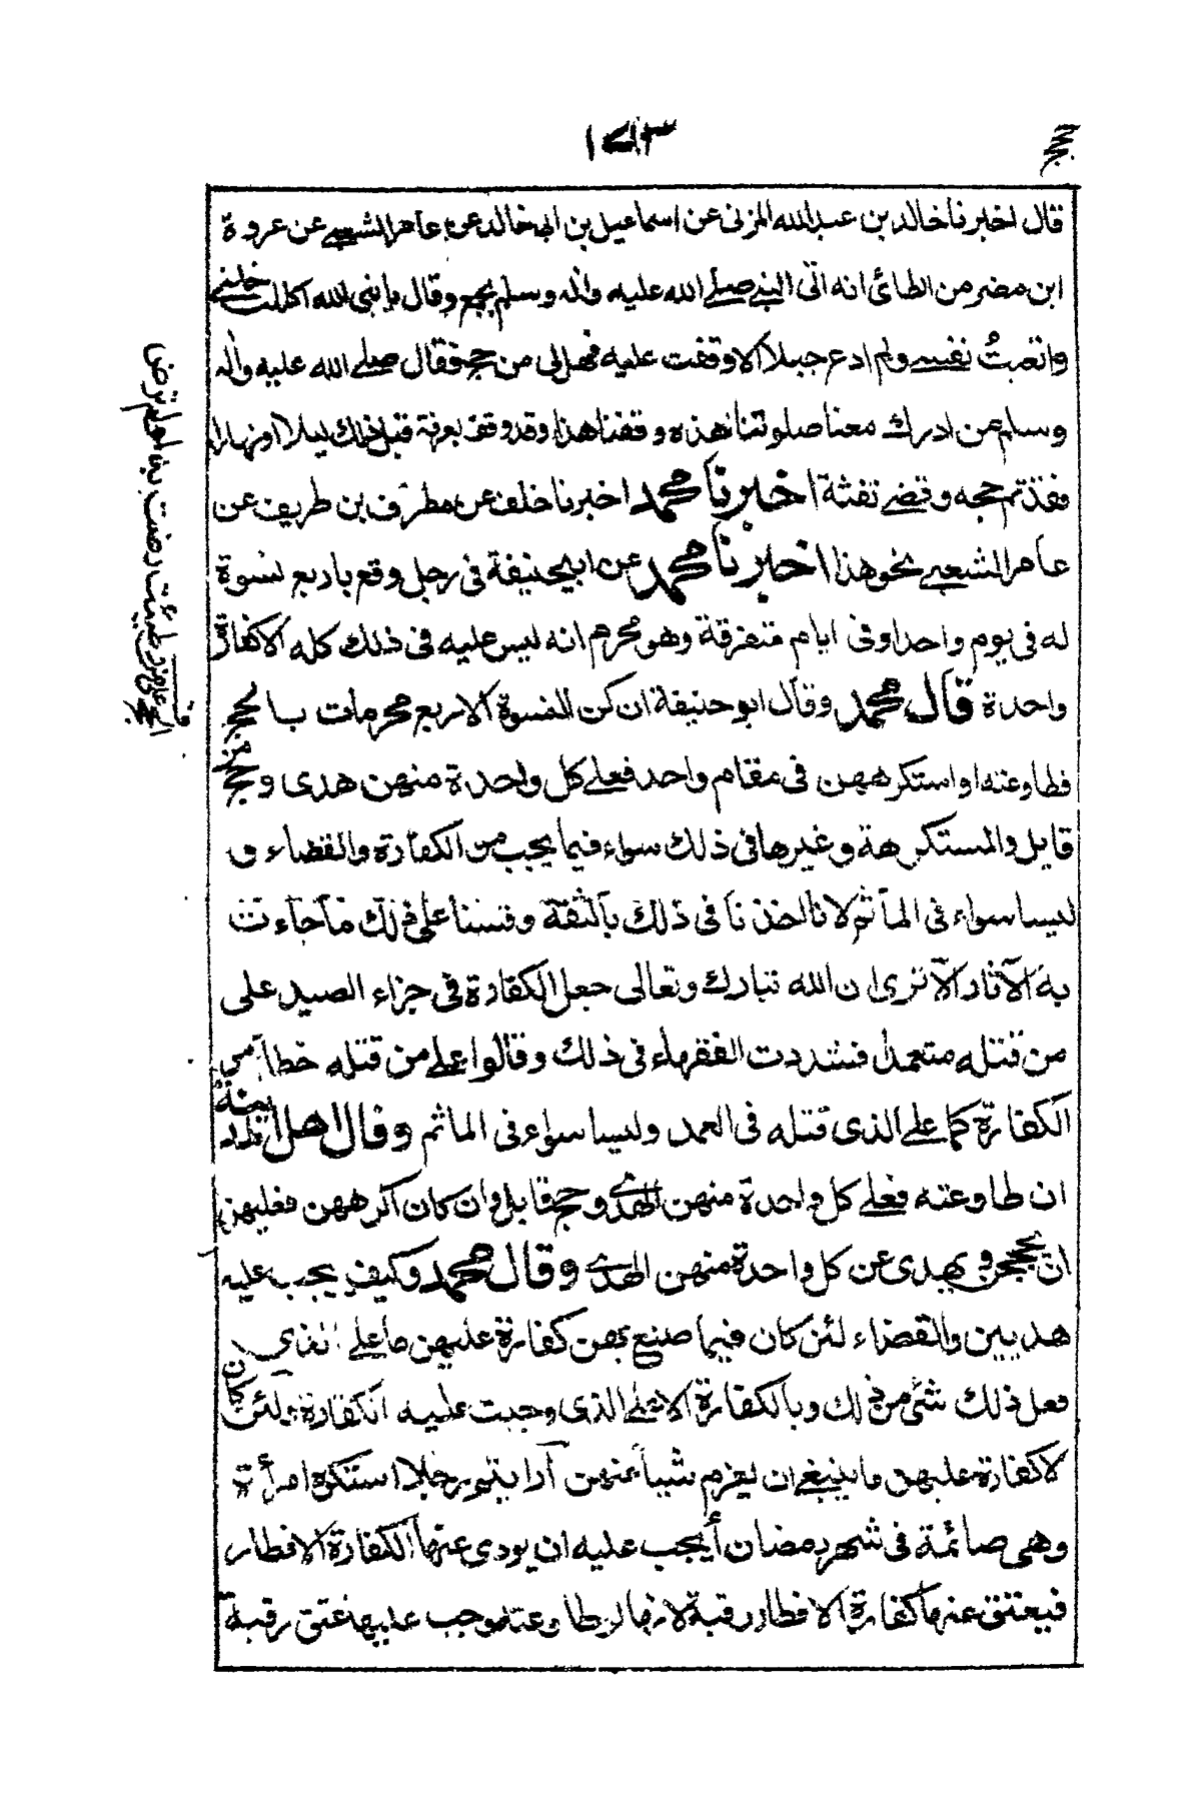 حج
١٤٣
قال اخبرنا خالد بن عبد الله المزنى عن اسماعيل بن ابى خالد عن عامر الشعبى عن عروة
ابن مضرس الطائى انه اتى النبى صلى الله عليه واله وسلم بجمع وقال يا نبى الله اكللت
واتعبتُ نفسى ولم ادع جبلا الا وقفت عليه فهل لى من حج فقال صلى الله عليه واله
وسلم من ادرك معنا صلوتنا هذه وقفنا هذا وقد وقف بعرفة قبل ذلك ليلا او نهارا
فقد تم حجه وقضى تفثة اخبرنا محمد اخبرنا خلف عن مطرف بن طريف عن
عامر الشعبى نحو هذا اخبرنا محمد عن ابيحنيفة فى رجل وقع باربع نسوة
له فى يوم واحد او فى ايام متفرقة وهو محرم انه ليس عليه فى ذلك كله الا كفارة
واحدة قال محمد وقال ابو حنيفة ان كن النسوة الاربع محرمات بالحج
فطاوعنه او استكرههن فى مقام واحد فعلى كل واحدة منهن هدى وحج من
قابل والمستكرهة وغيرها فى ذلك سواء فيما يجب من الكفارة والقضاء و
ليسا سواء فى المأثم لانا اخذنا فى ذلك بالثقة وقسنا على ذلك ما جاءت
به الآثار الا ترى ان الله تبارك وتعالى جعل الكفارة فى جزاء الصيد على
من قتله متعمدا فشددت الفقهاء فى ذلك وقالوا على من قتله خطأ من
الكفارة كما على الذى قتله فى العمد وليسا سواء فى الماثم وقال اهل المدينة
ان طاوعنه فعلى كل واحدة منهن الهدى وحج قابل وان كان اكرههن فعليه
ان يحججن ويهدى عن كل واحدة منهن الهدى وقال محمد وكيف يجب عليه
هديين والقضاء لئن كان فيما صنع بهن كفارة عليهن ما على الذى
فعل ذلك شئ من ذلك وبالكفارة الا على الذى وجبت عليه الكفارة ولئن كان
لا كفارة عليهن ما ينبغى ان يغرم شيأ عنهن أرايتم رجلا استكره امرأة
وهى صائمة فى شهر رمضان أيجب عليه ان يودى عنها الكفارة الافطار
فيعتق عنها كفارة الافطار رقبة لانها لو طاوعته لوجب عليها عتق رقبة